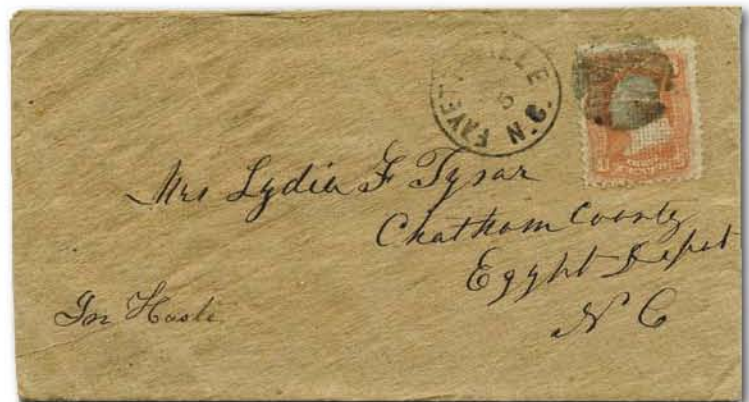 FAYE LLE N.C.
5
Mrs Lydia F Tysar
Chatham County
Egypt Depot
N C
In Haste